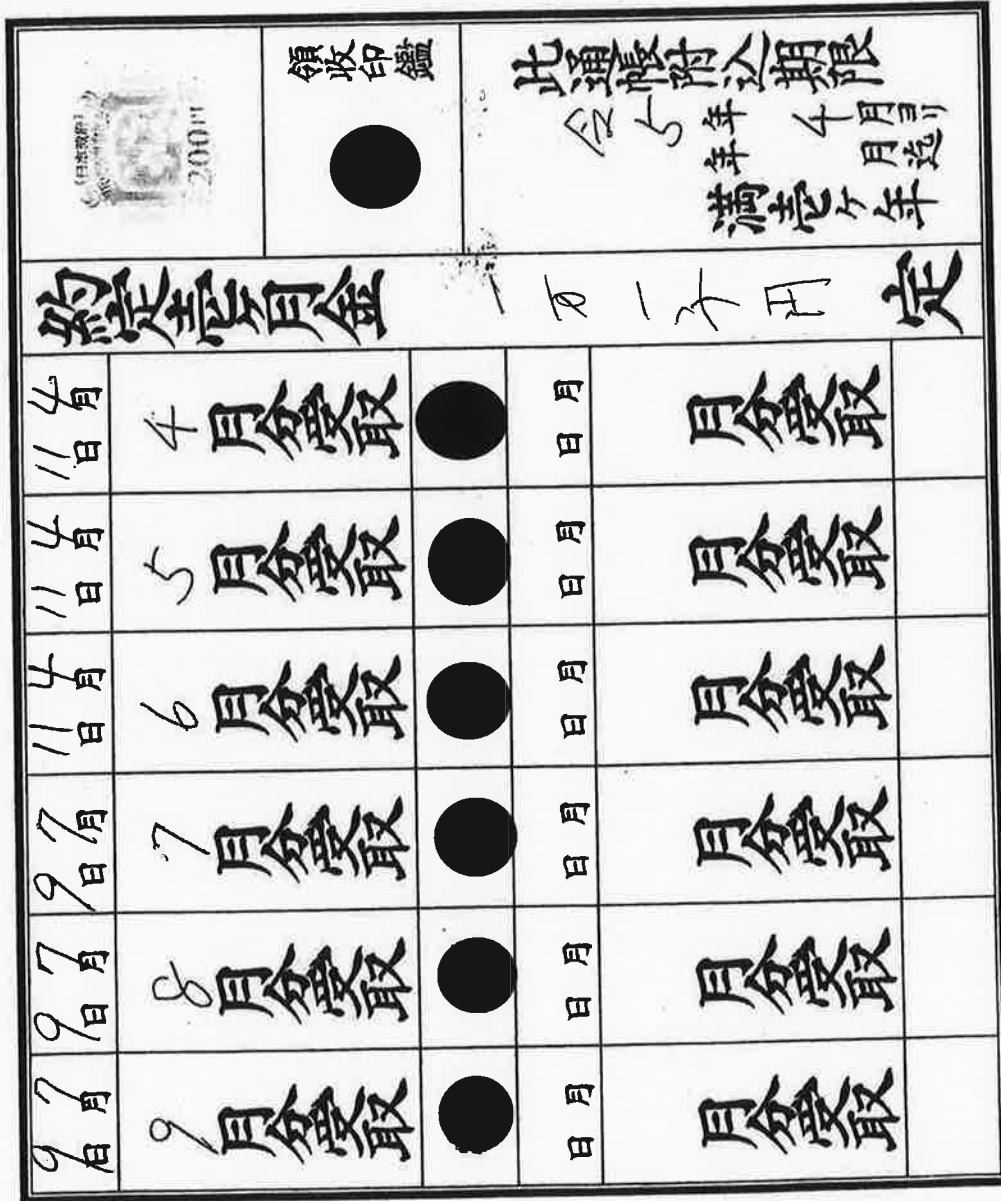 此通帳附込期限
令5年 4月ヨリ
年 月迄
満壱ケ年
領收印鑑
日本政府
200円
約定壱ケ月金 一万一千円 定
4月11日 4月分受取
4月11日 5月分受取
4月11日 6月分受取
7月9日 7月分受取
7月9日 8月分受取
7月9日 9月分受取
月 日 月分受取
月 日 月分受取
月 日 月分受取
月 日 月分受取
月 日 月分受取
月 日 月分受取